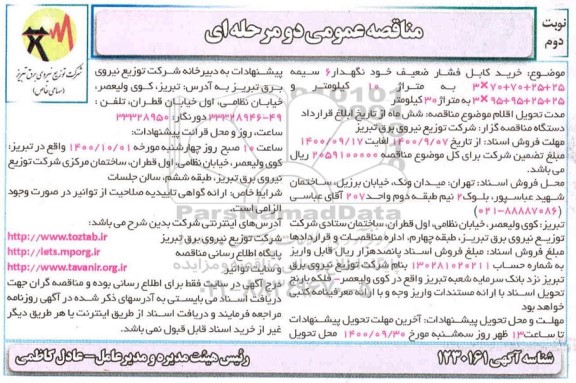 نوبت
دوم
مناقصه عمومی دو مرحله ای
شرکت توزیع نیروی برق تبریز
(سهامی خاص)
موضوع: خرید کابل فشار ضعیف خود نگهدار ۶ سیمه
۳×۷۰+۷۰+۲۵+۲۵ به متراژ ۱۰ کیلومتر و
۳×۹۵+۹۵+۲۵+۲۵ به متراژ ۳۰ کیلومتر
مدت تحویل اقلام موضوع مناقصه: شش ماه از تاریخ ابلاغ قرارداد
دستگاه مناقصه گزار: شرکت توزیع نیروی برق تبریز
مهلت فروش اسناد: از تاریخ ۱۴۰۰/۹/۰۷ لغایت ۱۴۰۰/۰۹/۱۷
مبلغ تضمین شرکت برای کل موضوع مناقصه ۲۰۵۹۱۰۰۰۰۰ ریال
می باشد.
محل فروش اسناد: تهران: میدان ونک، خیابان برزیل، ساختمان
شهید عباسپور، بلوک ۲ نیم طبقه دوم واحد ۲۰۷ آقای عباسی
(۰۲۱-۸۸۸۷۰۸۶)
تبریز: کوی ولیعصر، خیابان نظامی، اول قطران، ساختمان ستادی شرکت
توزیع نیروی برق تبریز، طبقه چهارم، اداره مناقصات و قراردادها
مبلغ فروش اسناد: مبلغ فروش اسناد پانصدهزار ریال قابل واریز
به شماره حساب ۱۳۰۲۸۱۰۲۰۲۱۱ بنام شرکت توزیع نیروی برق
تبریز نزد بانک سرمایه شعبه تبریز واقع در کوی ولیعصر- فلکه بارنج
تحویل اسناد با ارائه مستندات واریز وجه و با ارائه معرفینامه کتبی
خواهد بود
مهلت و محل تحویل پیشنهادات: آخرین مهلت تحویل پیشنهادات
تا ساعت ۱۳ ظهر روز سه‌شنبه مورخ ۱۴۰۰/۰۹/۳۰ محل تحویل
پیشنهادات به دبیرخانه شرکت توزیع نیروی
برق تبریز به آدرس: تبریز، کوی ولیعصر،
خیابان نظامی، اول خیابان قطران، تلفن :
۳۳۳۲۸۹۴۶-۴۹ دورنگار: ۳۳۳۲۸۹۵۰
ساعت، روز و محل قرائت پیشنهادات:
ساعت ۱۰ صبح روز چهارشنبه مورخه ۱۴۰۰/۱۰/۰۱ واقع در تبریز:
کوی ولیعصر، خیابان نظامی، اول قطران، ساختمان مرکزی شرکت توزیع
نیروی برق تبریز، طبقه ششم، سالن جلسات
شرایط خاص: ارائه گواهی تاییدیه صلاحیت از توانیر در صورت وجود
الزامی است.
آدرس‌های اینترنتی شرکت بدین شرح می باشد:
شرکت توزیع نیروی برق تبریز http://www.toztab.ir
پایگاه اطلاع رسانی مناقصه http://iets.mporg.ir
و سایت توانیر http://www.tavanir.org.ir
درج آگهی در سایت فقط برای اطلاع رسانی بوده و مناقصه گران جهت
دریافت اسناد می بایستی به آدرسهای ذکر شده در آگهی روزنامه
مراجعه فرمایند و دریافت اسناد از طریق اینترنت یا هر طریق دیگر
غیر از خرید اسناد قابل قبول نمی باشد.
شناسه آگهی ۱۲۳۰۱۶۱
رئیس هیئت مدیره و مدیر عامل - عادل کاظمی
ParsNamadData